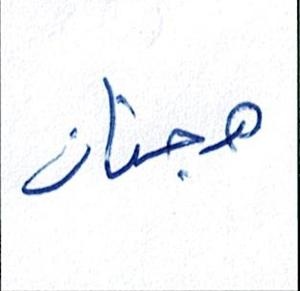 هجنان